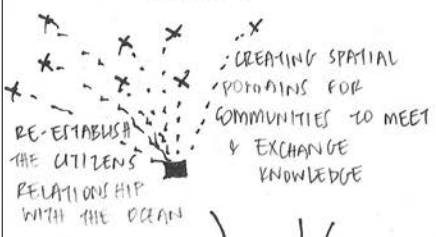 CREATING SPATIAL
DOMAINS FOR
COMMUNITIES TO MEET
& EXCHANGE
KNOWLEDGE
RE-ESTABLISH
THE CITIZENS
RELATIONSHIP
WITH THE OCEAN